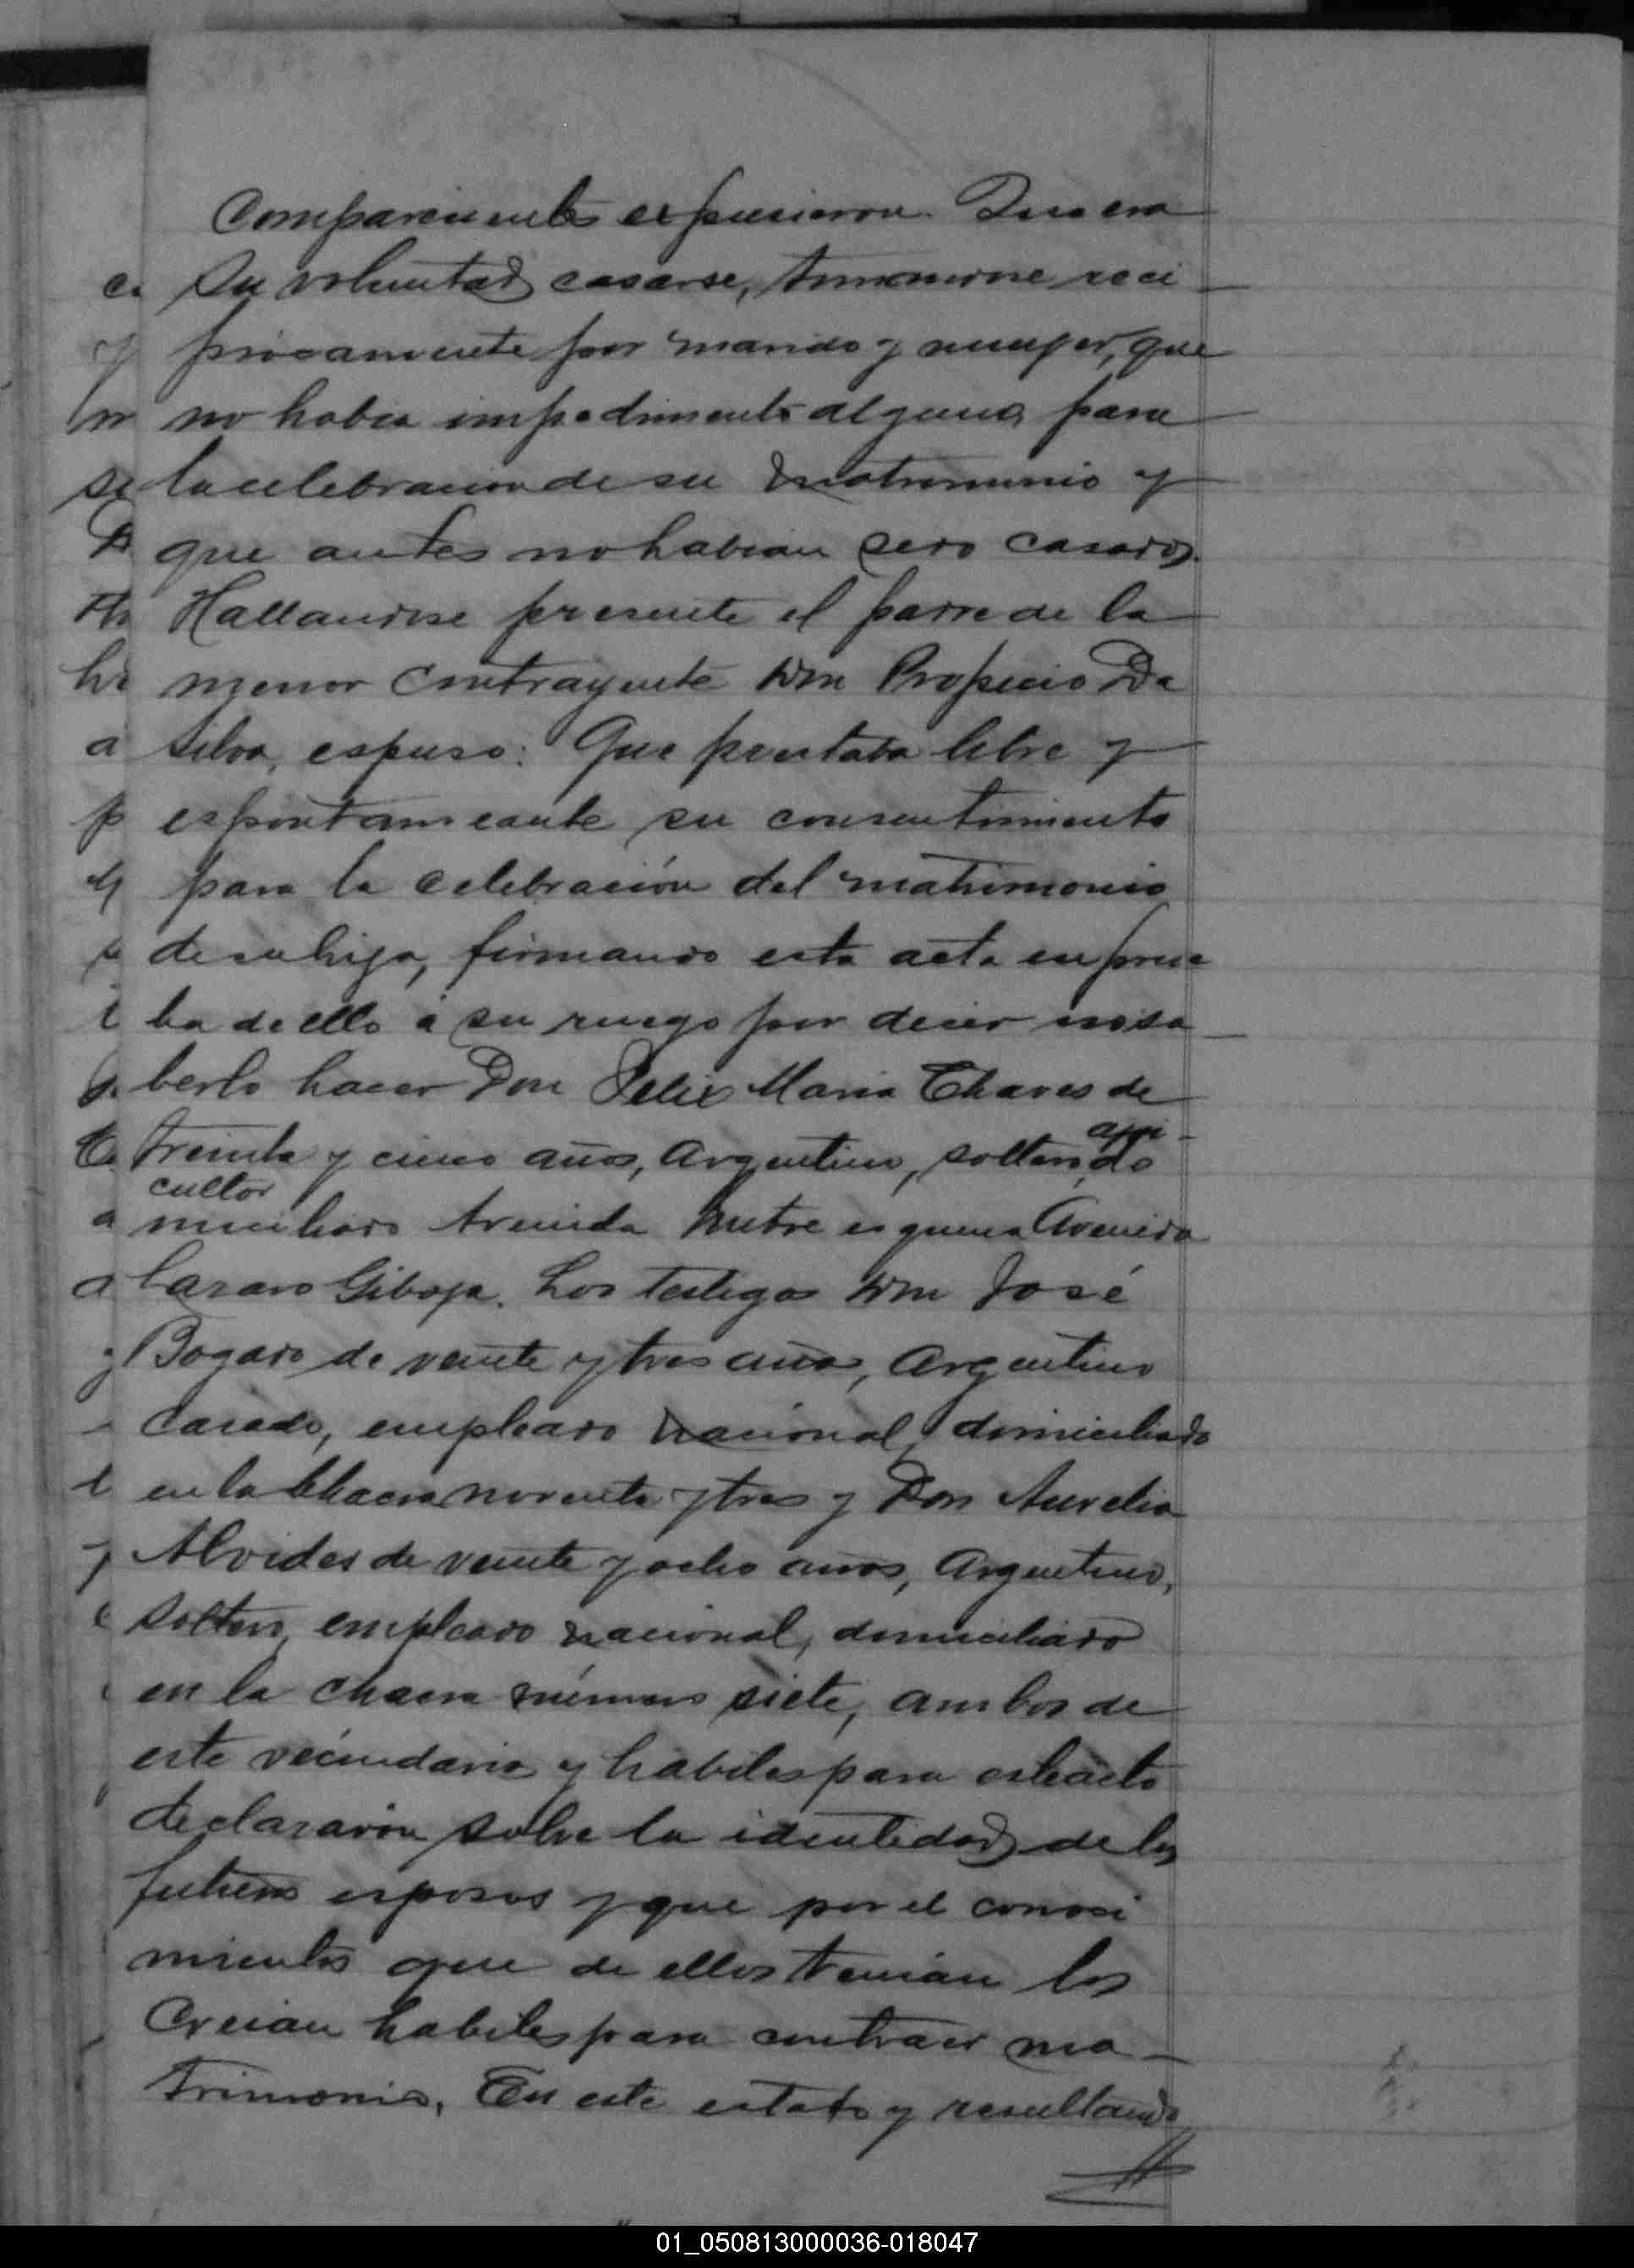 Comparecientes expusieron. Que era
su voluntad casarse, tomandose reci
procamente por marido y mujer, que
no habia impedimento alguno para
la celebracion de su matrimonio y
que antes no habian sido casados.
Hallandose presente el padre de la
menor contrayente Don Propicio Da
Silva, espuso: Que prestaba libre y
espontaneamente su consentimiento
para la celebración del matrimonio
de su hija, firmando esta acta en prue
ba de ello á su ruego por decir no sa
berlo hacer Don Felix Maria Chaves de
treinta y cinco años, Argentino, soltero, agri-
cultor do
miciliado Avenida Mitre esquina Avenida
Lazaro Giboja. Los testigos Don José
Bogado de veinte y tres años, Argentino
casado, empleado nacional, domiciliado
en la Chacra noventa y tres y Don Aurelio
Alvides de veinte y ocho años, Argentino,
soltero, empleado nacional, domiciliado
en la chacra número siete, ambos de
este vecindario y habiles para este acto
declararon sobre la identidad de los
futuros esposos y que por el conosi
miento que de ellos tenian los
creian habiles para contraer ma-
trimonio. En este estado y resultando
01_050813000036-018047